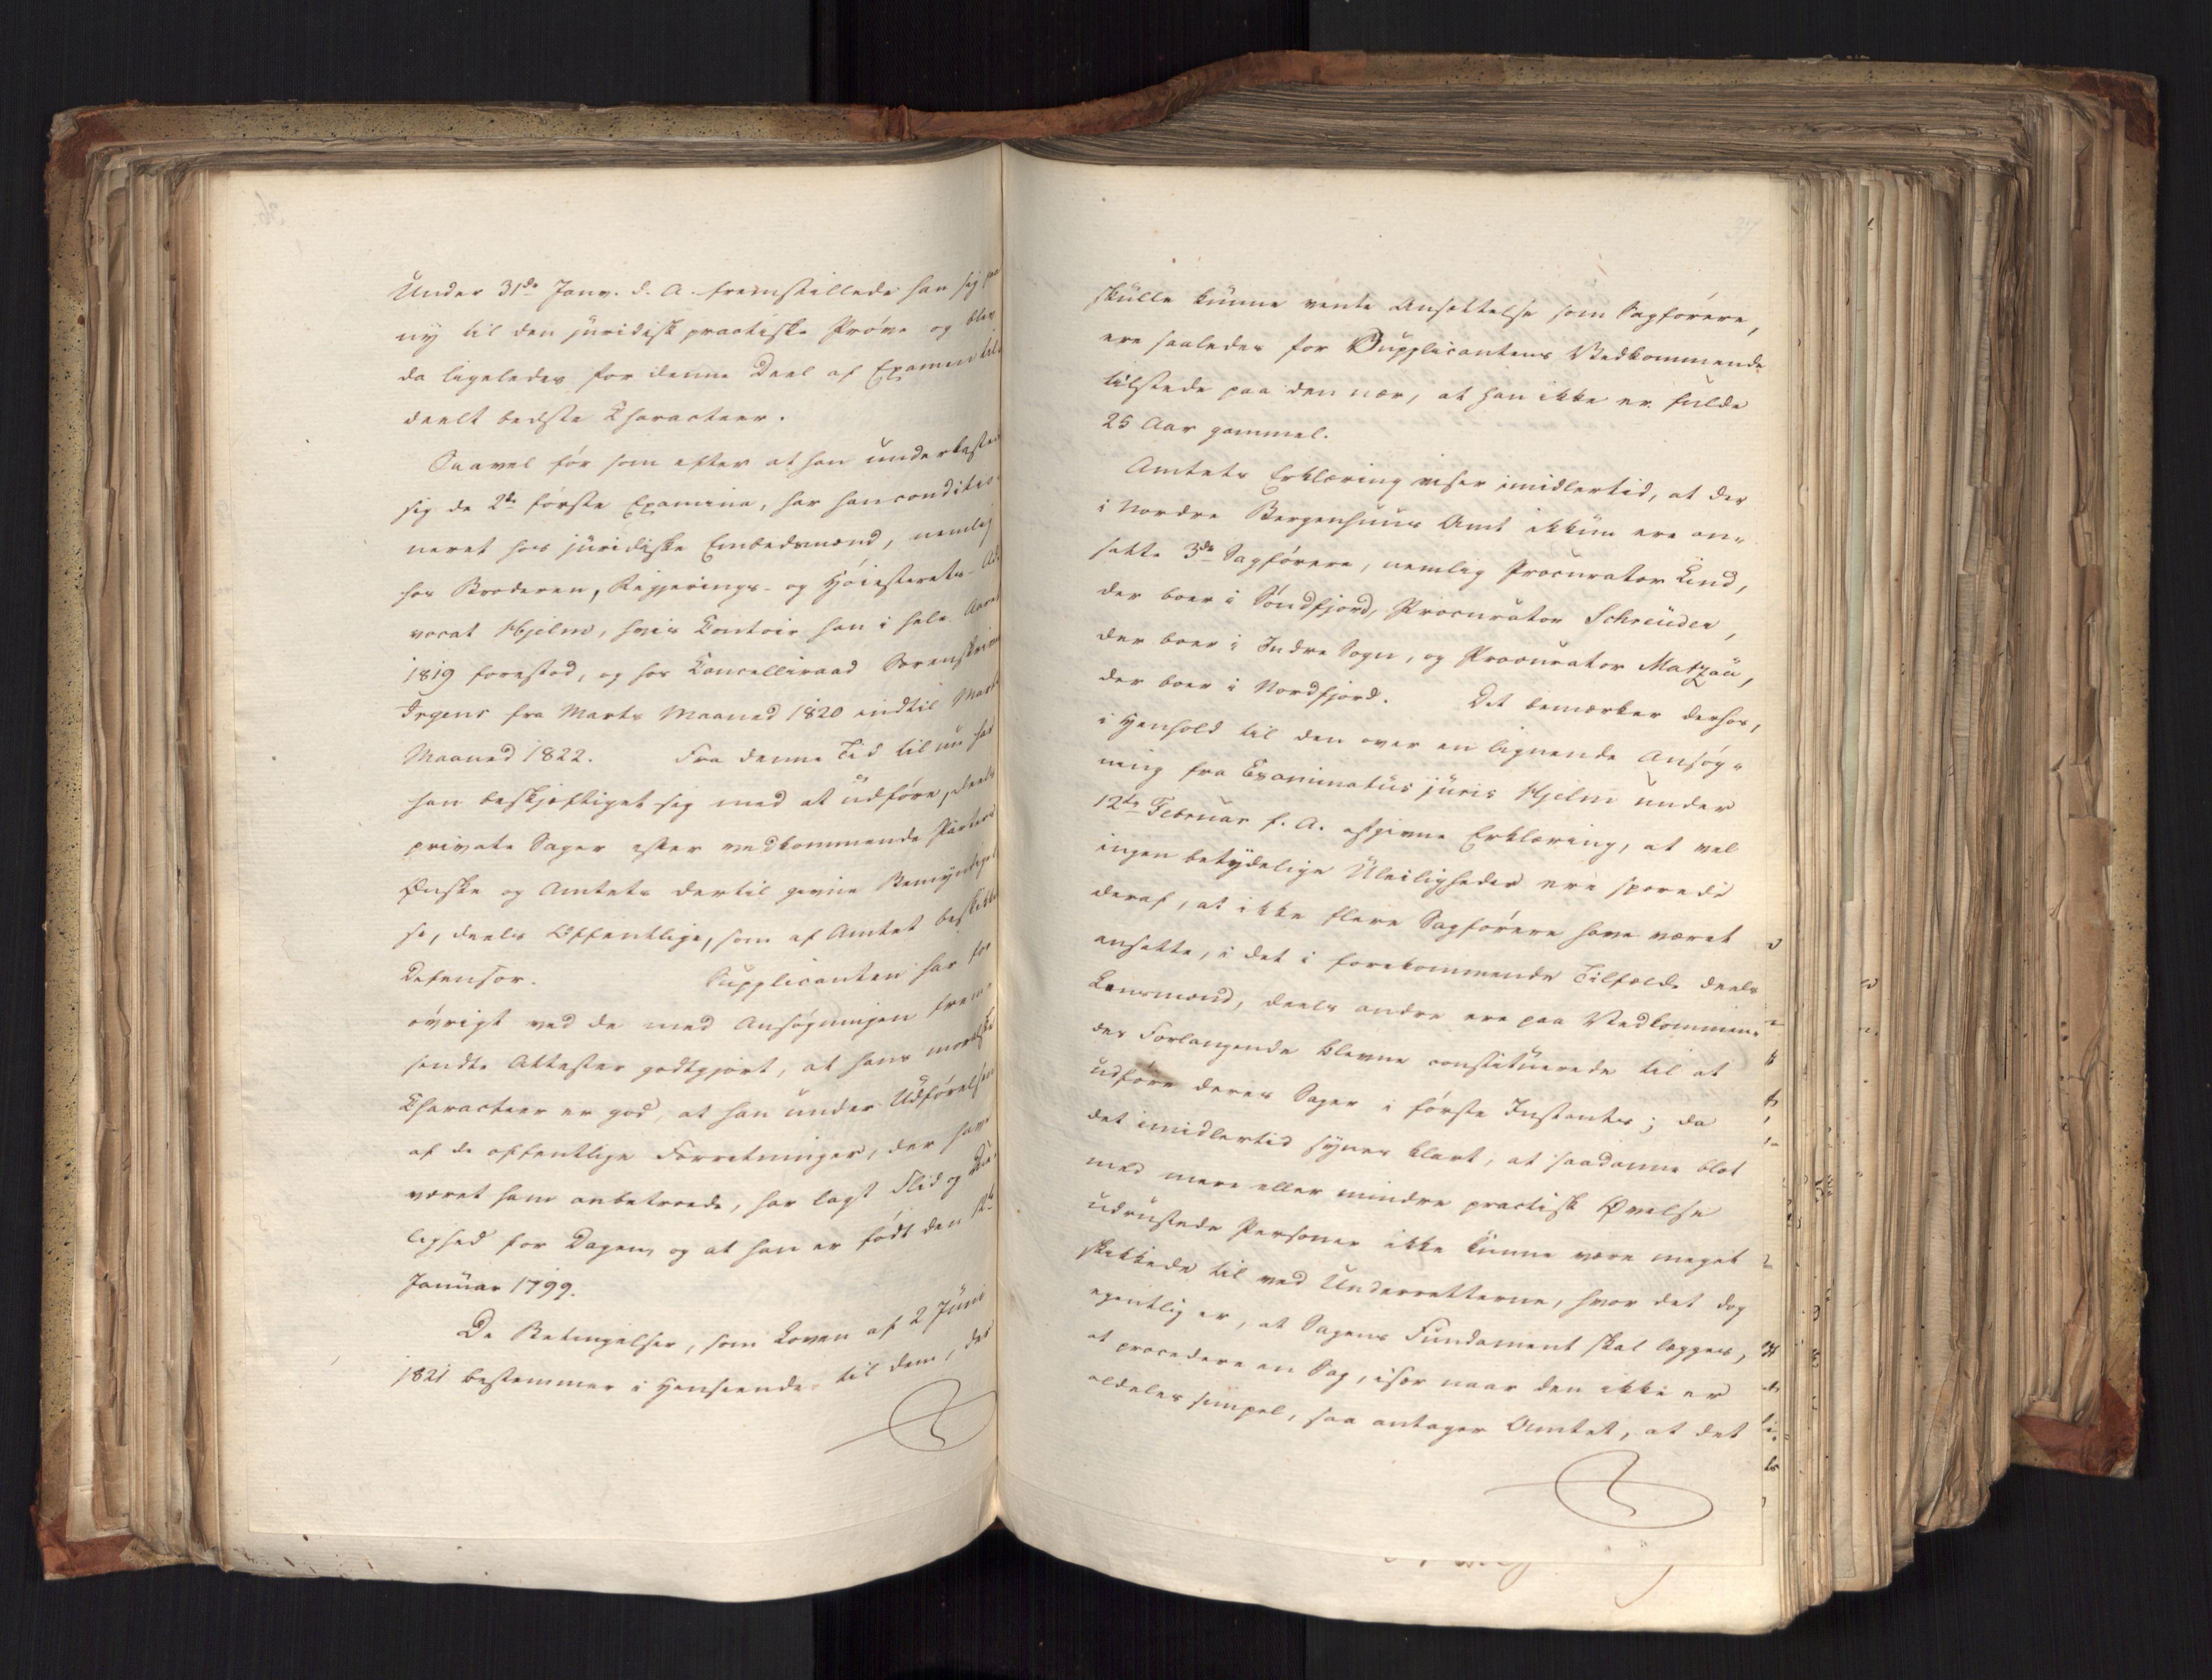 Under 31de Janv. d. A. fremstillede han sig paa
ny til den juridisk practiske Prøve og blev
da ligeledes for denne Deel af Examen til-
deelt bedste Characteer.
Saavel før som efter at han underkastede
sig de 2de første Examina, har han conditio-
neret hos juridiske Embedsmænd, nemlig
hos Broderen, Regjerings- og Høiesterets-Ad-
vocat Hjelm, hvis Contoir han i hele Aaret
1819 forestod, og hos Cancelliraad Sorenskriver
Irgens fra Marts Maaned 1820 indtil Marts
Maaned 1822. Fra denne Tid til nu har
han beskjeftiget sig med at udføre, deels
private Sager efter vedkommende Parters
Ønske og Amtets dertil givne Bemyndigel-
se, deels Offentlige, som af Amtet beskikket
Defensor. Supplicanten har for
øvrigt ved de med Ansøgningen frem-
sendte Attester godtgjort, at hans moralske
Characteer er god, at han under Udførelsen
af de offentlige Forretninger, der have
været ham anbetroede, har lagt Flid og Due-
lighed for Dagen, og at han er født den
Januar 1799.
De Betingelser, som Loven af 2 Juni
1821 bestemmer i Henseende til dem, der
skulle kunne vente Ansættelse som Sagførere,
ere saaledes for Supplicantens Vedkommende
tilstede paa den nær, at han ikke er fulde
25 Aar gammel.
Amtets Erklæring viser imidlertid, at der
i Nordre Bergenhuus Amt ikkun ere an-
satte 3de Sagførere, nemlig Procurator Lind,
der boer i Søndfjord, Procurator Schreuder,
der boer i Indre Sogn, og Procurator Matzau,
der boer i Nordfjord. Det bemærker derhos,
i Henhold til den over en lignende Ansøg-
ning fra Examinatus juris Hjelm under
12te Februar f. A. afgivne Erklæring, at vel
ingen betydelige Uleiligheder ere sporede
deraf, at ikke flere Sagførere have været
ansatte, i det i forekommende Tilfælde deels
Lensmænd, deels andre ere paa Vedkommen-
des Forlangende blevne constituerede til at
udføre deres Sager i første Instants; da
det imidlertid synes klart, at saadanne blot
med mere eller mindre practisk Øvelse
udrustede Personer ikke kunne være meget
skikkede til ved Underretterne, hvor det dog
egentlig er, at Sagens Fundament skal lægges,
at procedere en Sag, især naar den ikke er
aldeles simpel, saa antager Amtet, at det